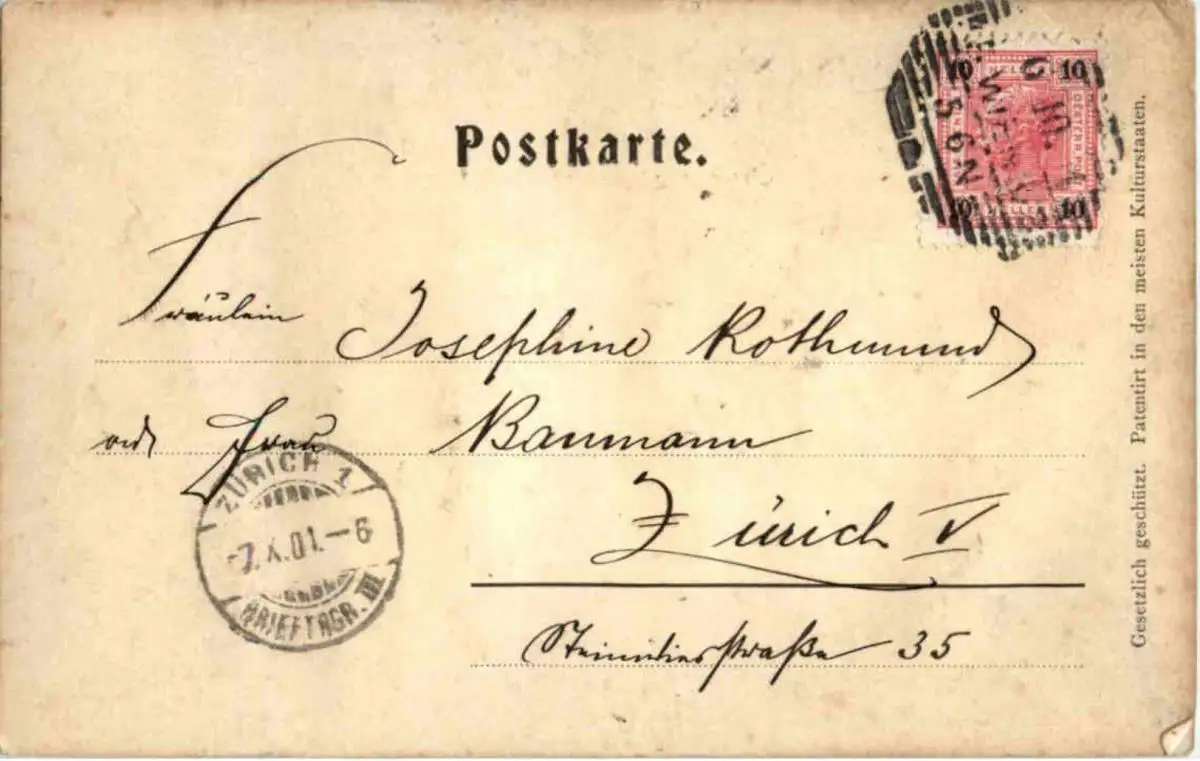 Postkarte.
Fräulein Josephine Rothmund
Frau Baumann
Zürich V
35
ZÜRICH 1
-7.X.01.-6
BRIEFTRGR. III
10 10
10 10
WIEN
5 6N
Gesetzlich geschützt. Patentirt in den meisten Kulturstaaten.